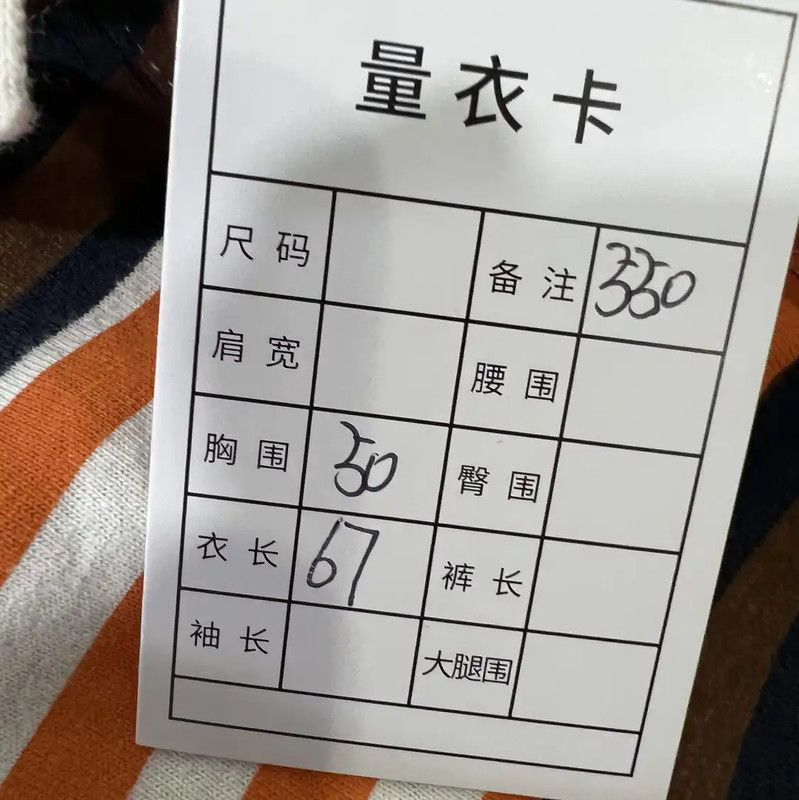 量衣卡
尺码 备注 350
肩宽 腰围
胸围 50 臀围
衣长 67 裤长
袖长 大腿围